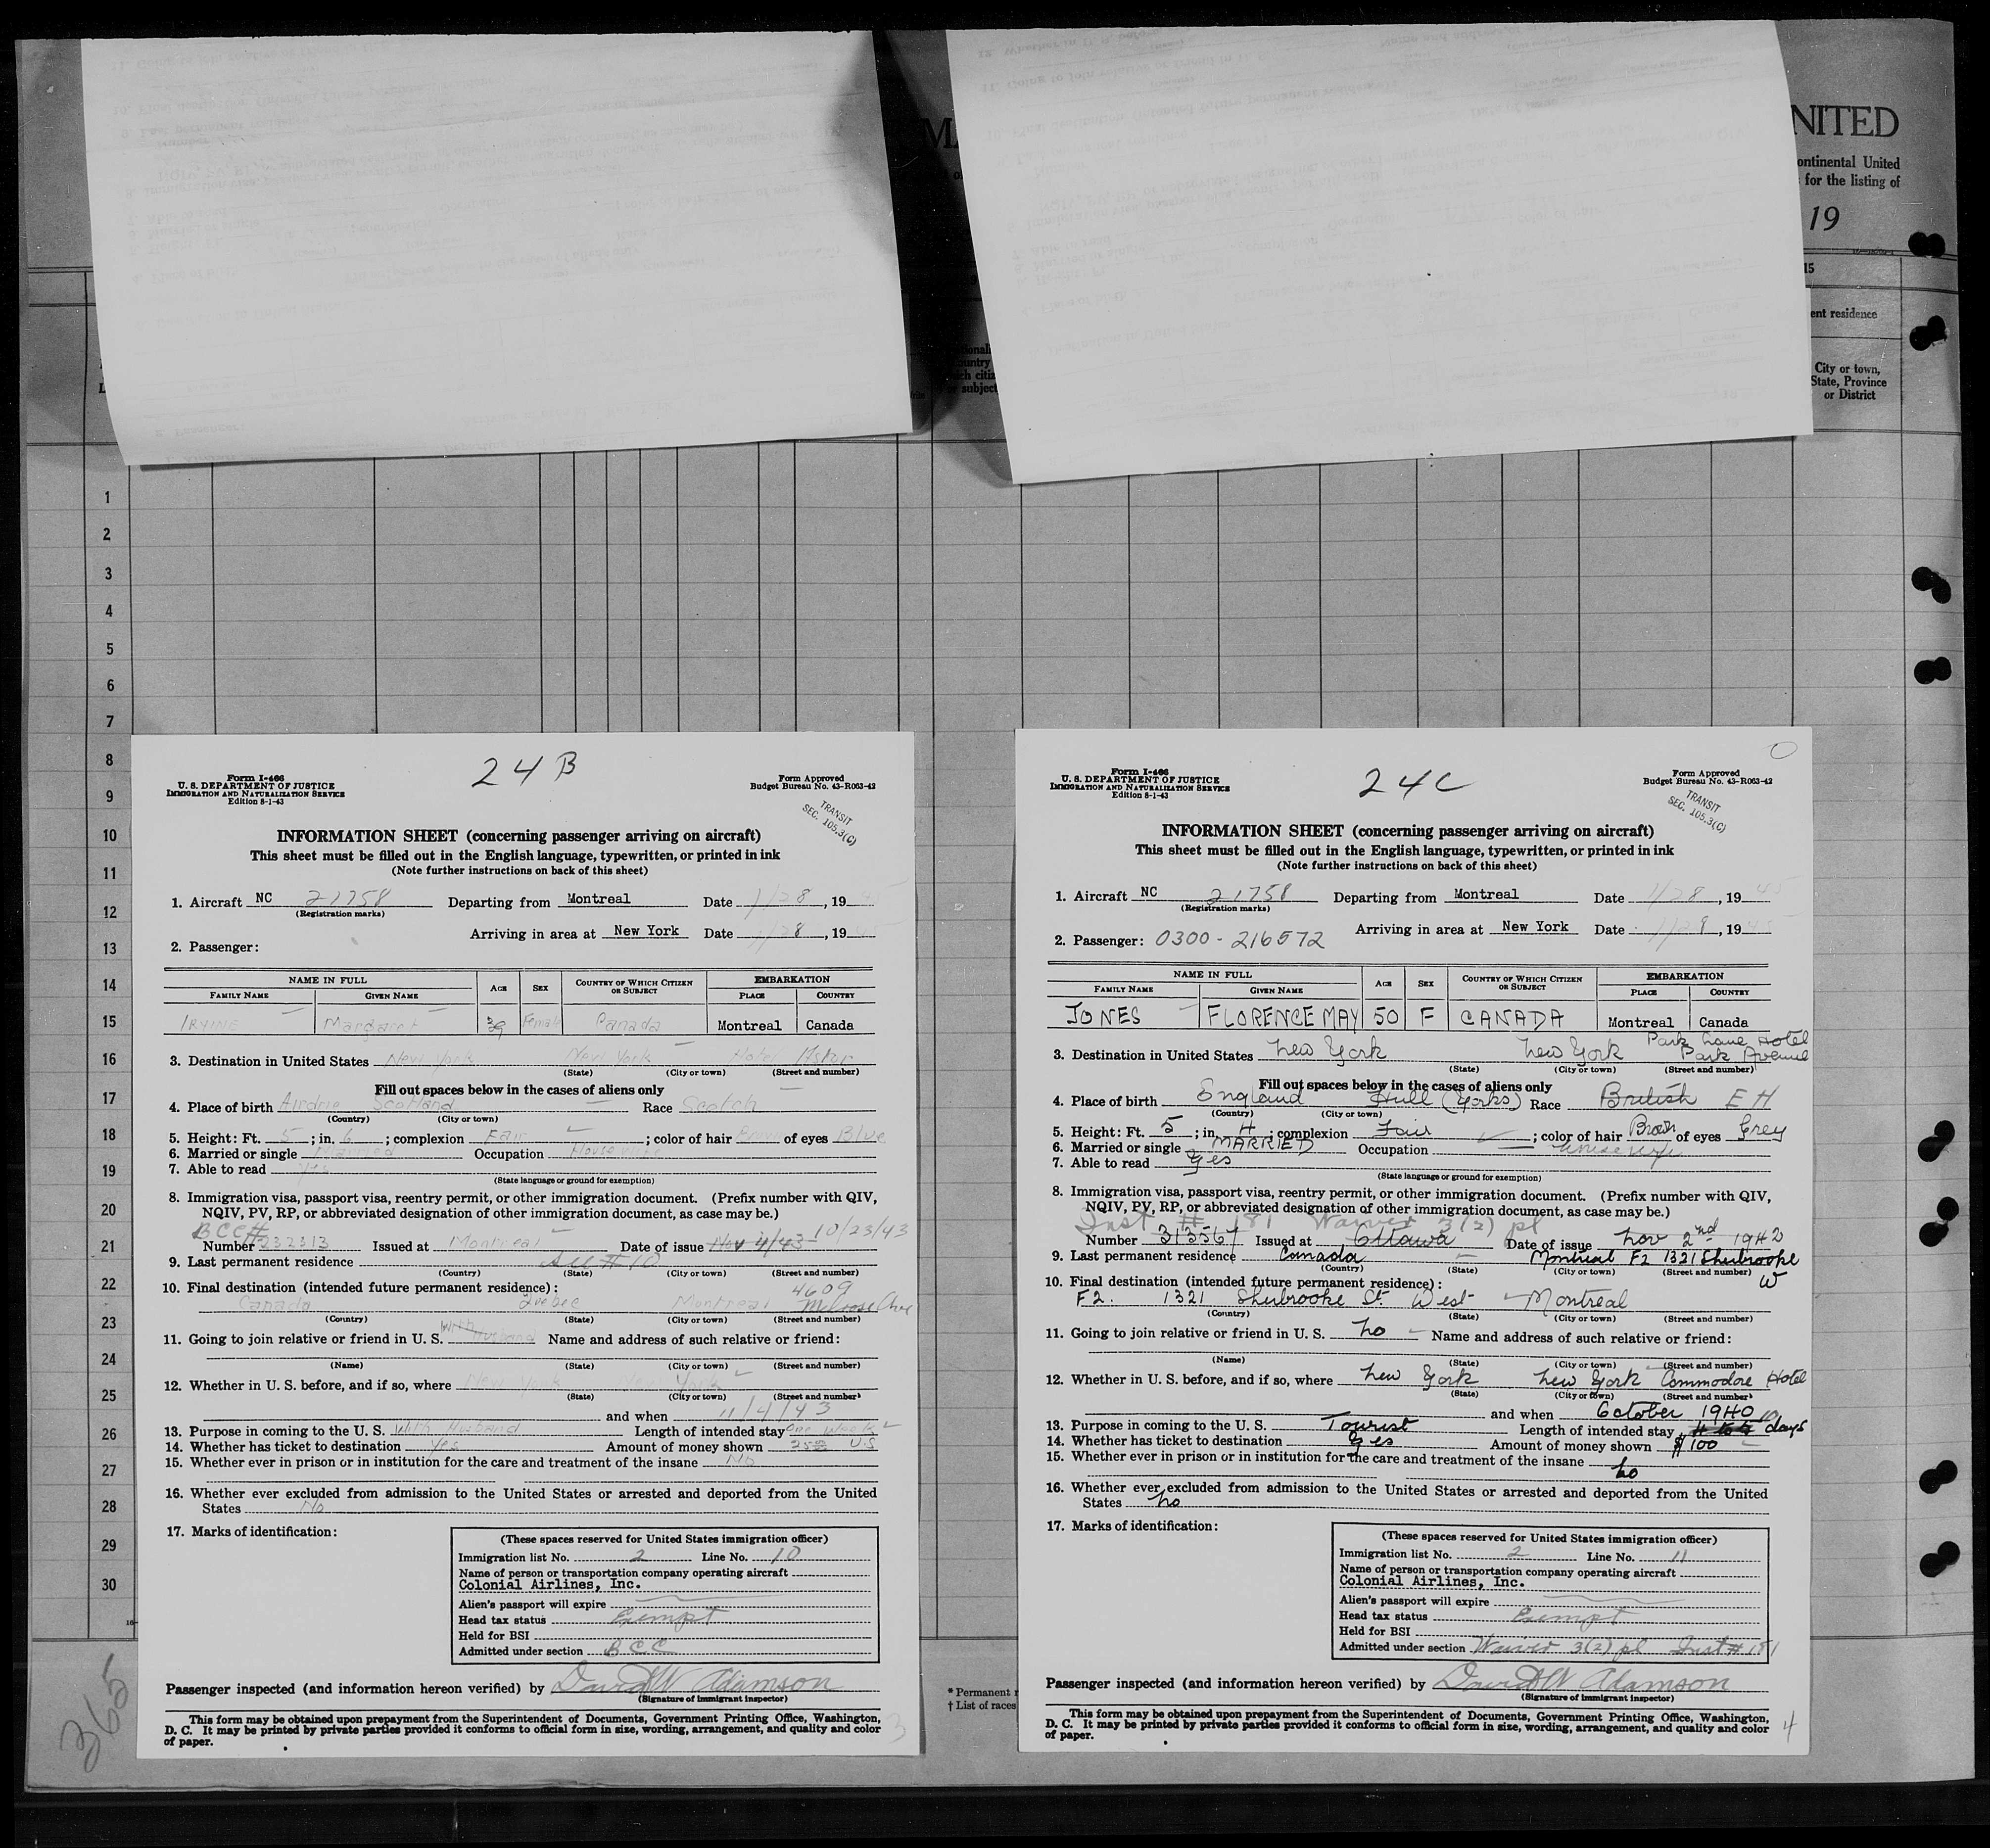 NITED
ontinental United
for the listing of
19
15
ent residence
City or town,
State, Province
or District
1
2
3
4
5
6
7
8
9
10
11
12
13
14
15
16
17
18
19
20
21
22
23
24
25
26
27
28
29
30
365
24B
Form I-466
U. S. DEPARTMENT OF JUSTICE
IMMIGRATION AND NATURALIZATION SERVICE
Edition 8-1-43
Form Approved
Budget Bureau No. 43-R063-42
TRANSIT
SEC. 105.3(C)
INFORMATION SHEET (concerning passenger arriving on aircraft)
This sheet must be filled out in the English language, typewritten, or printed in ink
(Note further instructions on back of this sheet)
1. Aircraft NC 21758 Departing from Montreal Date 1/28, 1945
(Registration marks)
Arriving in area at New York Date 1/28, 1945
2. Passenger:
NAME IN FULL AGE SEX COUNTRY OF WHICH CITIZEN OR SUBJECT EMBARKATION
FAMILY NAME GIVEN NAME PLACE COUNTRY
IRVING Margaret 39 Female Canada Montreal Canada
3. Destination in United States New York New York Hotel Astor
(State) (City or town) (Street and number)
Fill out spaces below in the cases of aliens only
4. Place of birth Airdrie Scotland Race Scotch
(Country) (City or town)
5. Height: Ft. 5; in. 6; complexion Fair; color of hair Brown of eyes Blue
6. Married or single Married Occupation Housewife
7. Able to read Yes
(State language or ground for exemption)
8. Immigration visa, passport visa, reentry permit, or other immigration document. (Prefix number with QIV,
NQIV, PV, RP, or abbreviated designation of other immigration document, as case may be.)
BCC# 10/23/43
Number 232313 Issued at Montreal Date of issue Nov 4/43
9. Last permanent residence See # 10
(Country) (State) (City or town) (Street and number)
10. Final destination (intended future permanent residence): 4609
Canada Quebec Montreal Melrose Ave
(Country) (State) (City or town) (Street and number)
11. Going to join relative or friend in U. S. With husband Name and address of such relative or friend:
(Name) (State) (City or town) (Street and number)
12. Whether in U. S. before, and if so, where New York New York
(State) (City or town) (Street and number)
and when 11/4/43
13. Purpose in coming to the U. S. With Husband Length of intended stay One week
14. Whether has ticket to destination Yes Amount of money shown U.S
15. Whether ever in prison or in institution for the care and treatment of the insane No
16. Whether ever excluded from admission to the United States or arrested and deported from the United
States No
17. Marks of identification:
(These spaces reserved for United States immigration officer)
Immigration list No. 2 Line No. 10
Name of person or transportation company operating aircraft
Colonial Airlines, Inc.
Alien's passport will expire
Head tax status Exempt
Held for BSI
Admitted under section BCC
Passenger inspected (and information hereon verified) by David W Adamson
(Signature of immigrant inspector)
This form may be obtained upon prepayment from the Superintendent of Documents, Government Printing Office, Washington,
D. C. It may be printed by private parties provided it conforms to official form in size, wording, arrangement, and quality and color
of paper.
3
* Permanent
† List of races
24C
Form I-466
U. S. DEPARTMENT OF JUSTICE
IMMIGRATION AND NATURALIZATION SERVICE
Edition 8-1-43
Form Approved
Budget Bureau No. 43-R063-42
TRANSIT
SEC. 105.3(C)
INFORMATION SHEET (concerning passenger arriving on aircraft)
This sheet must be filled out in the English language, typewritten, or printed in ink
(Note further instructions on back of this sheet)
1. Aircraft NC 21758 Departing from Montreal Date 1/28, 1945
(Registration marks)
Arriving in area at New York Date 1/28, 1945
2. Passenger: 0300-216572
NAME IN FULL AGE SEX COUNTRY OF WHICH CITIZEN OR SUBJECT EMBARKATION
FAMILY NAME GIVEN NAME PLACE COUNTRY
JONES FLORENCE MAY 50 F CANADA Montreal Canada
Park Lane Hotel
3. Destination in United States New York New York Park Avenue
(State) (City or town) (Street and number)
Fill out spaces below in the cases of aliens only
4. Place of birth England Hull (Yorks) Race British EH
(Country) (City or town)
5. Height: Ft. 5; in. 4; complexion Fair; color of hair Brown of eyes Grey
6. Married or single MARRIED Occupation Housewife
7. Able to read Yes
(State language or ground for exemption)
8. Immigration visa, passport visa, reentry permit, or other immigration document. (Prefix number with QIV,
NQIV, PV, RP, or abbreviated designation of other immigration document, as case may be.)
Inst # 181 Waiver 3(2) pl
Number 313567 Issued at Ottawa Date of issue Nov 2nd 1942
9. Last permanent residence Canada Montreal F2 1321 Sherbrooke
(Country) (State) (City or town) (Street and number) W
10. Final destination (intended future permanent residence):
F2. 1321 Sherbrooke St. West Montreal
(Country) (State) (City or town) (Street and number)
11. Going to join relative or friend in U. S. No Name and address of such relative or friend:
(Name) (State) (City or town) (Street and number)
12. Whether in U. S. before, and if so, where New York New York Commodore Hotel
(State) (City or town) (Street and number)
and when October 1940
13. Purpose in coming to the U. S. Tourist Length of intended stay 10 days
14. Whether has ticket to destination Yes Amount of money shown $100
15. Whether ever in prison or in institution for the care and treatment of the insane No
16. Whether ever excluded from admission to the United States or arrested and deported from the United
States No
17. Marks of identification:
(These spaces reserved for United States immigration officer)
Immigration list No. 2 Line No. 11
Name of person or transportation company operating aircraft
Colonial Airlines, Inc.
Alien's passport will expire
Head tax status Exempt
Held for BSI
Admitted under section Waiver 3(2) pl Inst # 181
Passenger inspected (and information hereon verified) by David W Adamson
(Signature of immigrant inspector)
This form may be obtained upon prepayment from the Superintendent of Documents, Government Printing Office, Washington,
D. C. It may be printed by private parties provided it conforms to official form in size, wording, arrangement, and quality and color
of paper.
4